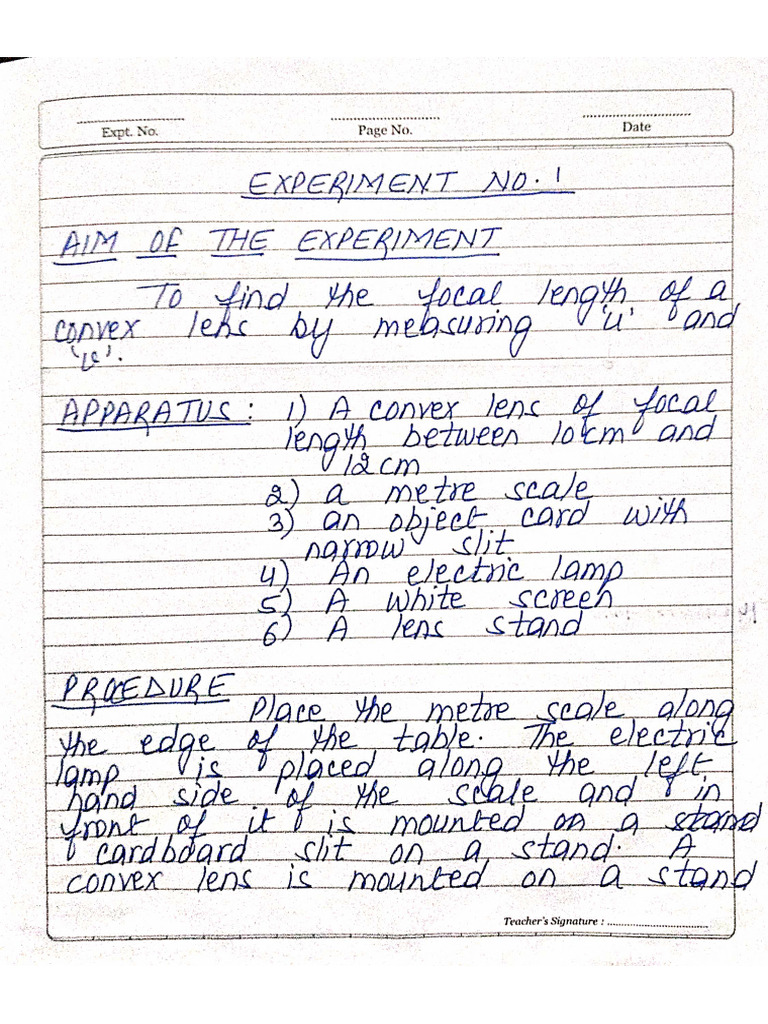 Expt. No. Page No. Date
EXPERIMENT NO. 1
AIM OF THE EXPERIMENT
To find the focal length of a
convex lens by measuring 'u' and
'v'.
APPARATUS : 1) A convex lens of focal
length between 10cm and
12cm
2) a metre scale
3) an object card with
narrow slit
4) An electric lamp
5) A white screen
6) A lens stand
PROCEDURE
Place the metre scale along
the edge of the table. The electric
lamp is placed along the left
hand side of the scale and in
front of it is mounted on a stand
cardboard slit on a stand. A
convex lens is mounted on a stand
Teacher's Signature :